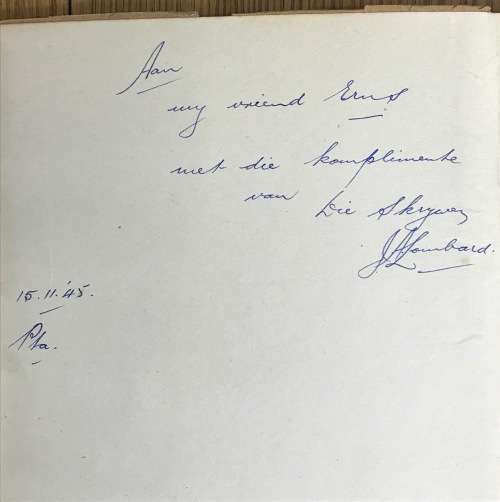 Aan
my vriend Erns
met die komplimente
van die Skrywer
Lombard.
15.11.'45.
Pta.